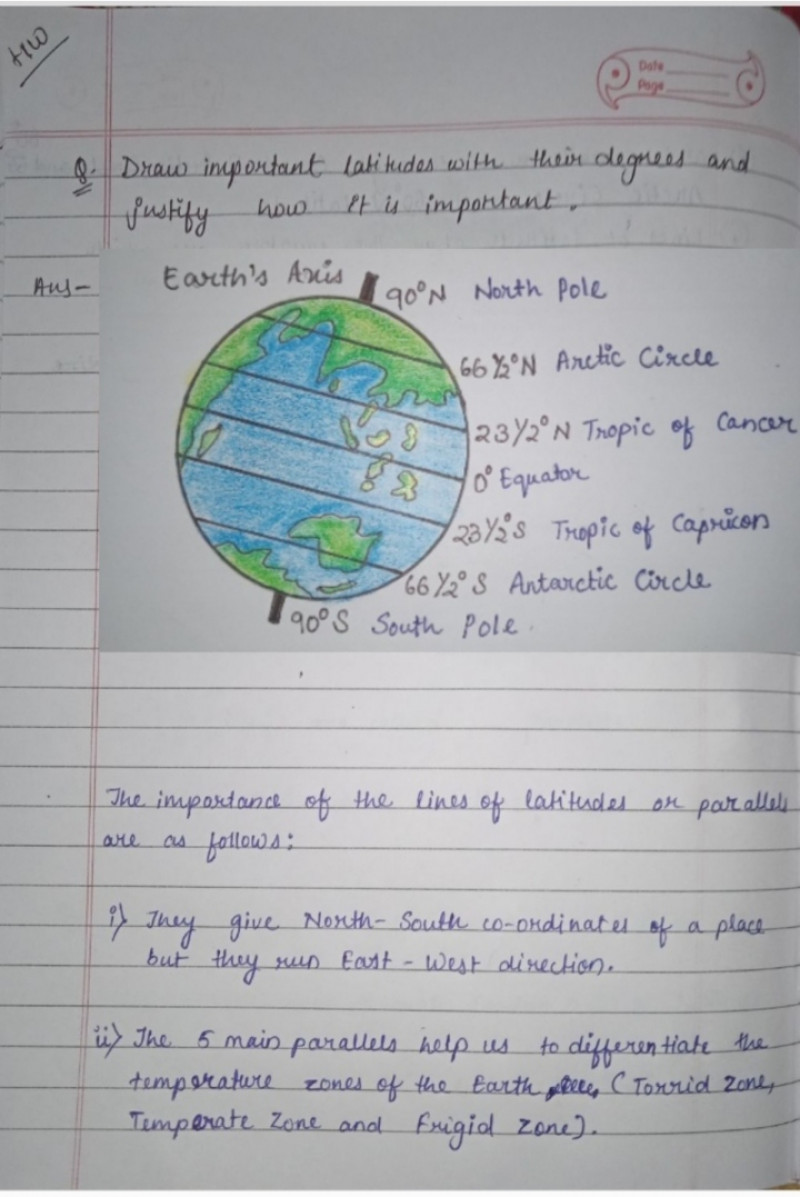 HW
Date
Page
Q. Draw important latitudes with their degrees and
justify how it is important.
Ans-
Earth's Axis
90°N North Pole
66 1/2°N Arctic Circle
23 1/2°N Tropic of Cancer
0° Equator
23 1/2°S Tropic of Capricon
66 1/2°S Antarctic Circle
90°S South Pole.
The importance of the lines of latitudes or parallels
are as follows:
i) They give North-South co-ordinates of a place
but they run East-West direction.
ii) The 5 main parallels help us to differentiate the
temperature zones of the Earth (Torrid Zone,
Temperate Zone and Frigid Zone).